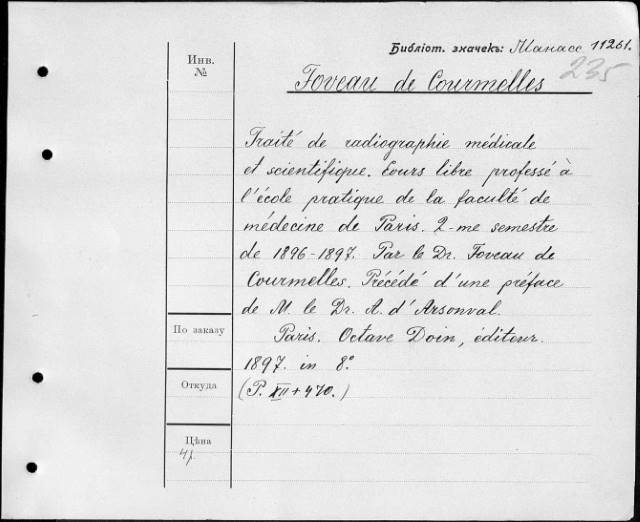 Библіот. значекъ: Манасс 11261.
235
Инв.
№
Foveau de Courmelles
Traité de radiographie médicale
et scientifique. Cours libre professé à
l'école pratique de la faculté de
médecine de Paris. 2-me semestre
de 1896-1897. Par le Dr. Foveau de
Courmelles. Précédé d'une préface
de M. le Dr. A. d'Arsonval.
Paris. Octave Doin, éditeur.
1897. in 8°
(P. XII + 470.)
По заказу
Откуда
Цѣна